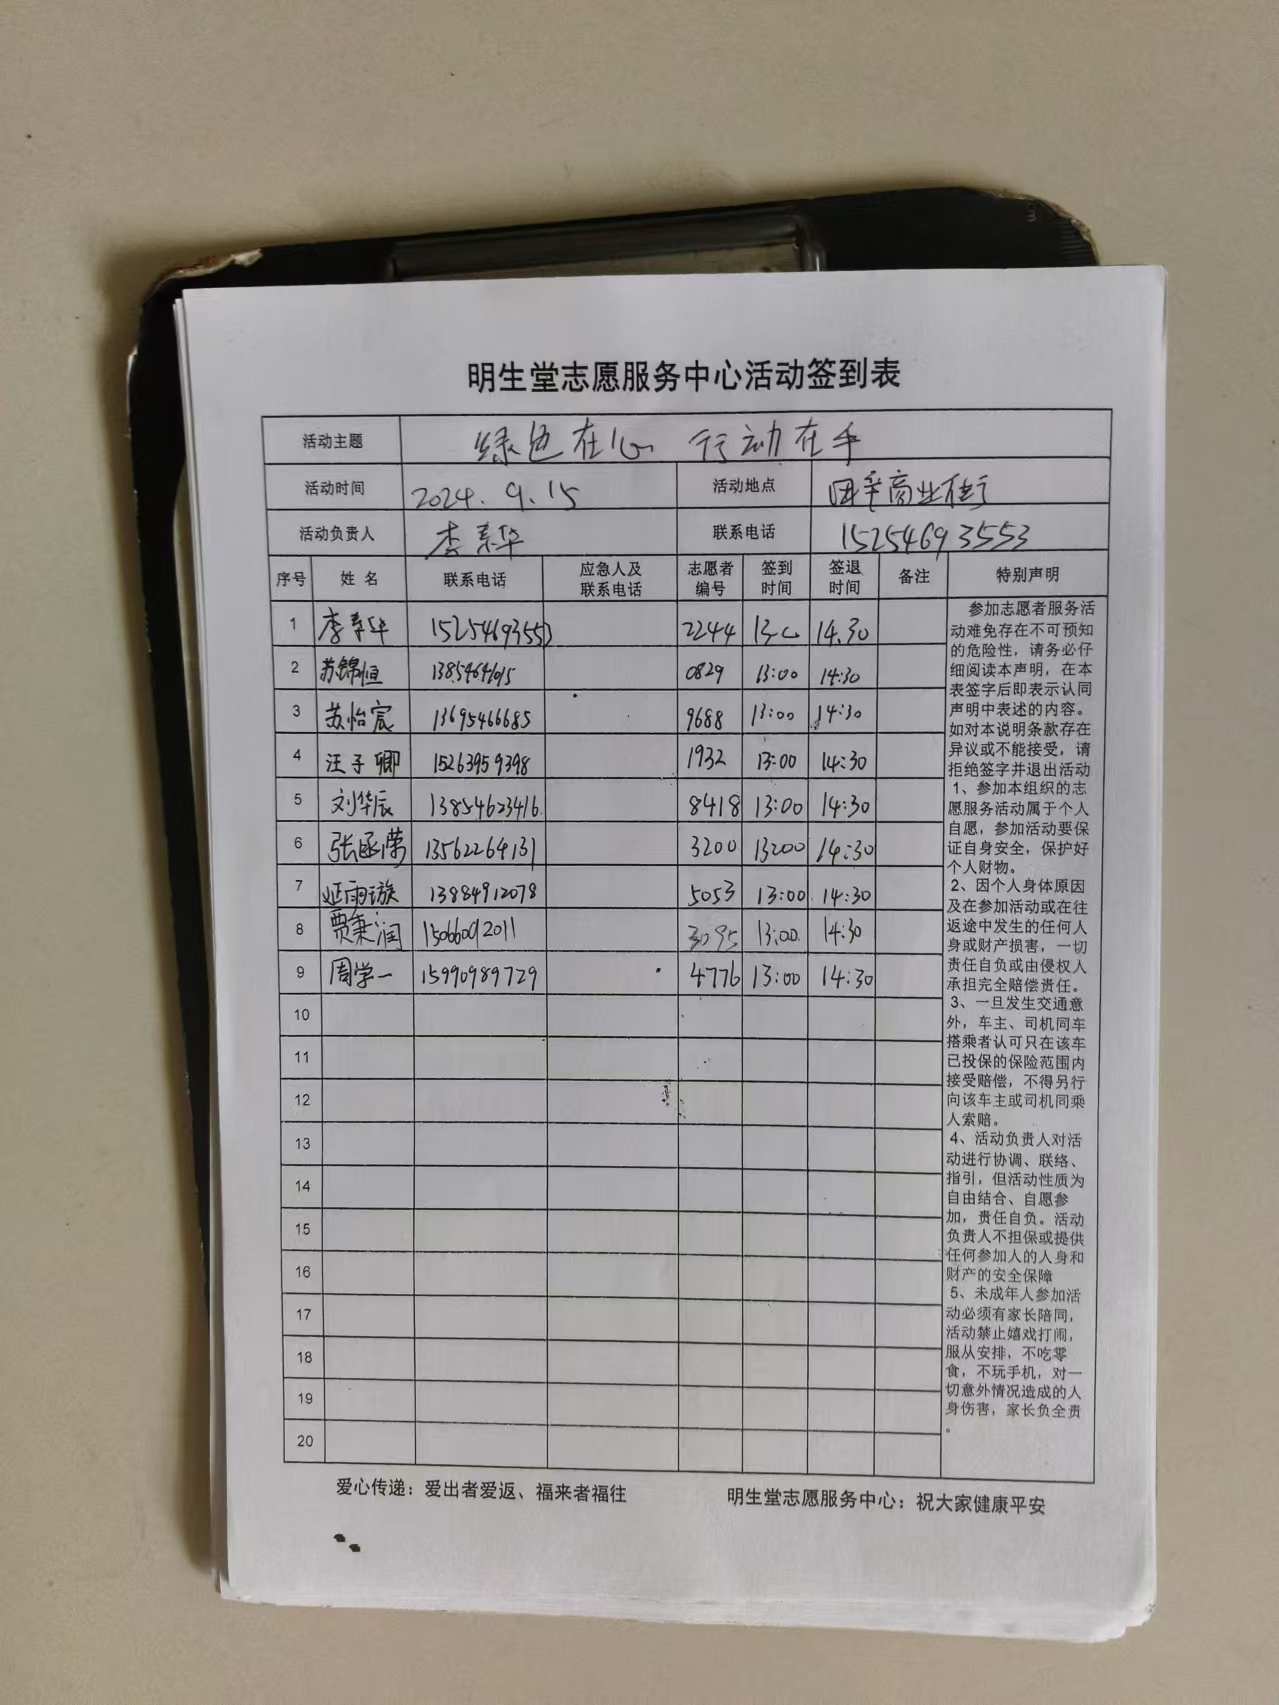 明生堂志愿服务中心活动签到表
活动主题 绿色在心 行动在手
活动时间 2024.9.15 活动地点 商业街
活动负责人 李素华 联系电话 15254693553
序号 姓名 联系电话 应急人及联系电话 志愿者编号 签到时间 签退时间 备注 特别声明
1 李素华 15254693553 2244 14.30
2 苏锦恒 0829 13:00 14:30
3 苏怡宸 13695466685 9688 13:00 14:30
4 汪子卿 15263959398 1932 13:00 14:30
5 刘华辰 13854623416 8418 13:00 14:30
6 张函 13562264131 3200 13:00 14:30
7 雨璇 13884912078 5053 13:00 14:30
8 贾秉润 15066092011 3095 13:00 14:30
9 周学一 15990989729 4776 13:00 14:30
10
11
12
13
14
15
16
17
18
19
20
参加志愿者服务活
动难免存在不可预知
的危险性，请务必仔
细阅读本声明，在本
表签字后即表示认同
声明中表述的内容。
如对本说明条款存在
异议或不能接受，请
拒绝签字并退出活动
1、参加本组织的志
愿服务活动属于个人
自愿，参加活动要保
证自身安全，保护好
个人财物。
2、因个人身体原因
及在参加活动或在往
返途中发生的任何人
身或财产损害，一切
责任自负或由侵权人
承担完全赔偿责任。
3、一旦发生交通意
外，车主、司机同车
搭乘者认可只在该车
已投保的保险范围内
接受赔偿，不得另行
向该车主或司机同乘
人索赔。
4、活动负责人对活
动进行协调、联络、
指引，但活动性质为
自由结合、自愿参
加，责任自负。活动
负责人不担保或提供
任何参加人的人身和
财产的安全保障
5、未成年人参加活
动必须有家长陪同，
活动禁止嬉戏打闹，
服从安排，不吃零
食，不玩手机，对一
切意外情况造成的人
身伤害，家长负全责
。
爱心传递：爱出者爱返、福来者福往 明生堂志愿服务中心：祝大家健康平安